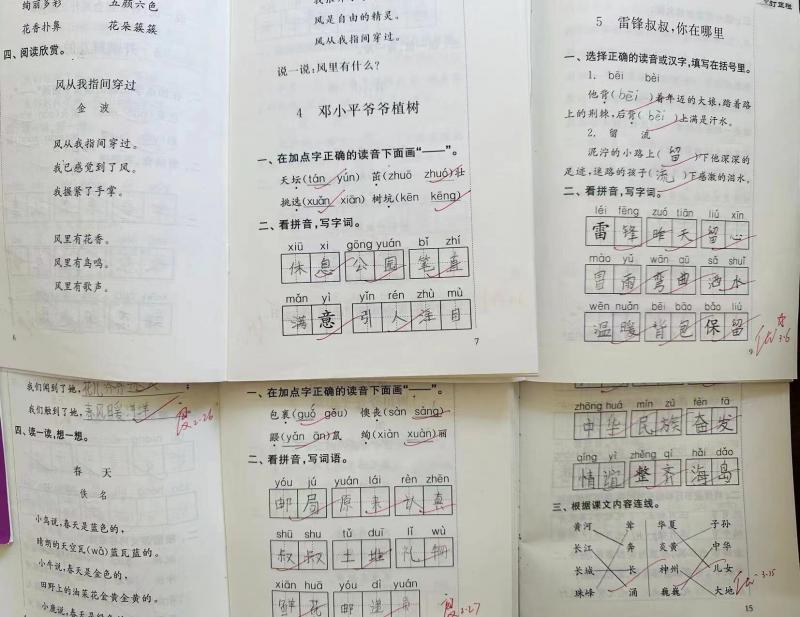 绚丽多彩 五颜六色
花香扑鼻 花朵簇簇
四、阅读欣赏。
风从我指间穿过
金 波
风从我指间穿过。
我已感觉到了风。
我握紧了手掌。
风里有花香。
风里有鸟鸣。
风里有歌声。
6
风是自由的精灵。
说一说:风里有什么?
4 邓小平爷爷植树
一、在加点字正确的读音下面画“——”。
天坛(tán yún) 茁(zhuō zhuó)壮
挑选(xuǎn xiān) 树坑(kēn kēng)
二、看拼音,写字词。
xiū xi gōng yuán bǐ zhí
休息 公园 笔直
mǎn yì yǐn rén zhù mù
满意 引人注目
7
订正栏
5 雷锋叔叔,你在哪里
一、选择正确的读音或汉字,填写在括号里。
1. bēi bèi
他背(bēi)着年迈的大娘,踏着路
上的荆棘,后背(bèi)上满是汗水。
2. 留 流
泥泞的小路上(留)下他深深的
足迹,迷路的孩子(流)下感激的泪水。
二、看拼音,写字词。
léi fēng zuó tiān liú xīn
雷锋 昨天 留心
mào yǔ wān qū sǎ shuǐ
冒雨 弯曲 洒水
wēn nuǎn bēi bāo bǎo liú
温暖 背包 保留
9
3.6
我们闻到了她,
我们触到了她,春风暖洋洋
2.26
四、读一读,想一想。
春 天
佚 名
小鸟说,春天是蓝色的,
晴朗的天空瓦(wà)蓝瓦蓝的。
小牛说,春天是金色的,
田野上的油菜花金黄金黄的。
一、在加点字正确的读音下面画“——”。
包裹(guǒ gǒu) 懊丧(sàn sàng)
鼹(yǎn ān)鼠 绚(xiàn xuàn)丽
二、看拼音,写词语。
yóu jú yuán lái rèn zhēn
邮局 原来 认真
shū shu tǔ duī lǐ wù
叔叔 土堆 礼物
xiān huā yóu dì yuán
鲜花 邮递员
2.27
zhōng huá mín zú fèn fā
中华 民族 奋发
qíng yì zhěng qí hǎi dǎo
情谊 整齐 海岛
三、根据课文内容连线。
黄河 耸 华夏 子孙
长江 奔 炎黄 中华
长城 长 神州 儿女
珠峰 涌 巍巍 大地
3.15
15